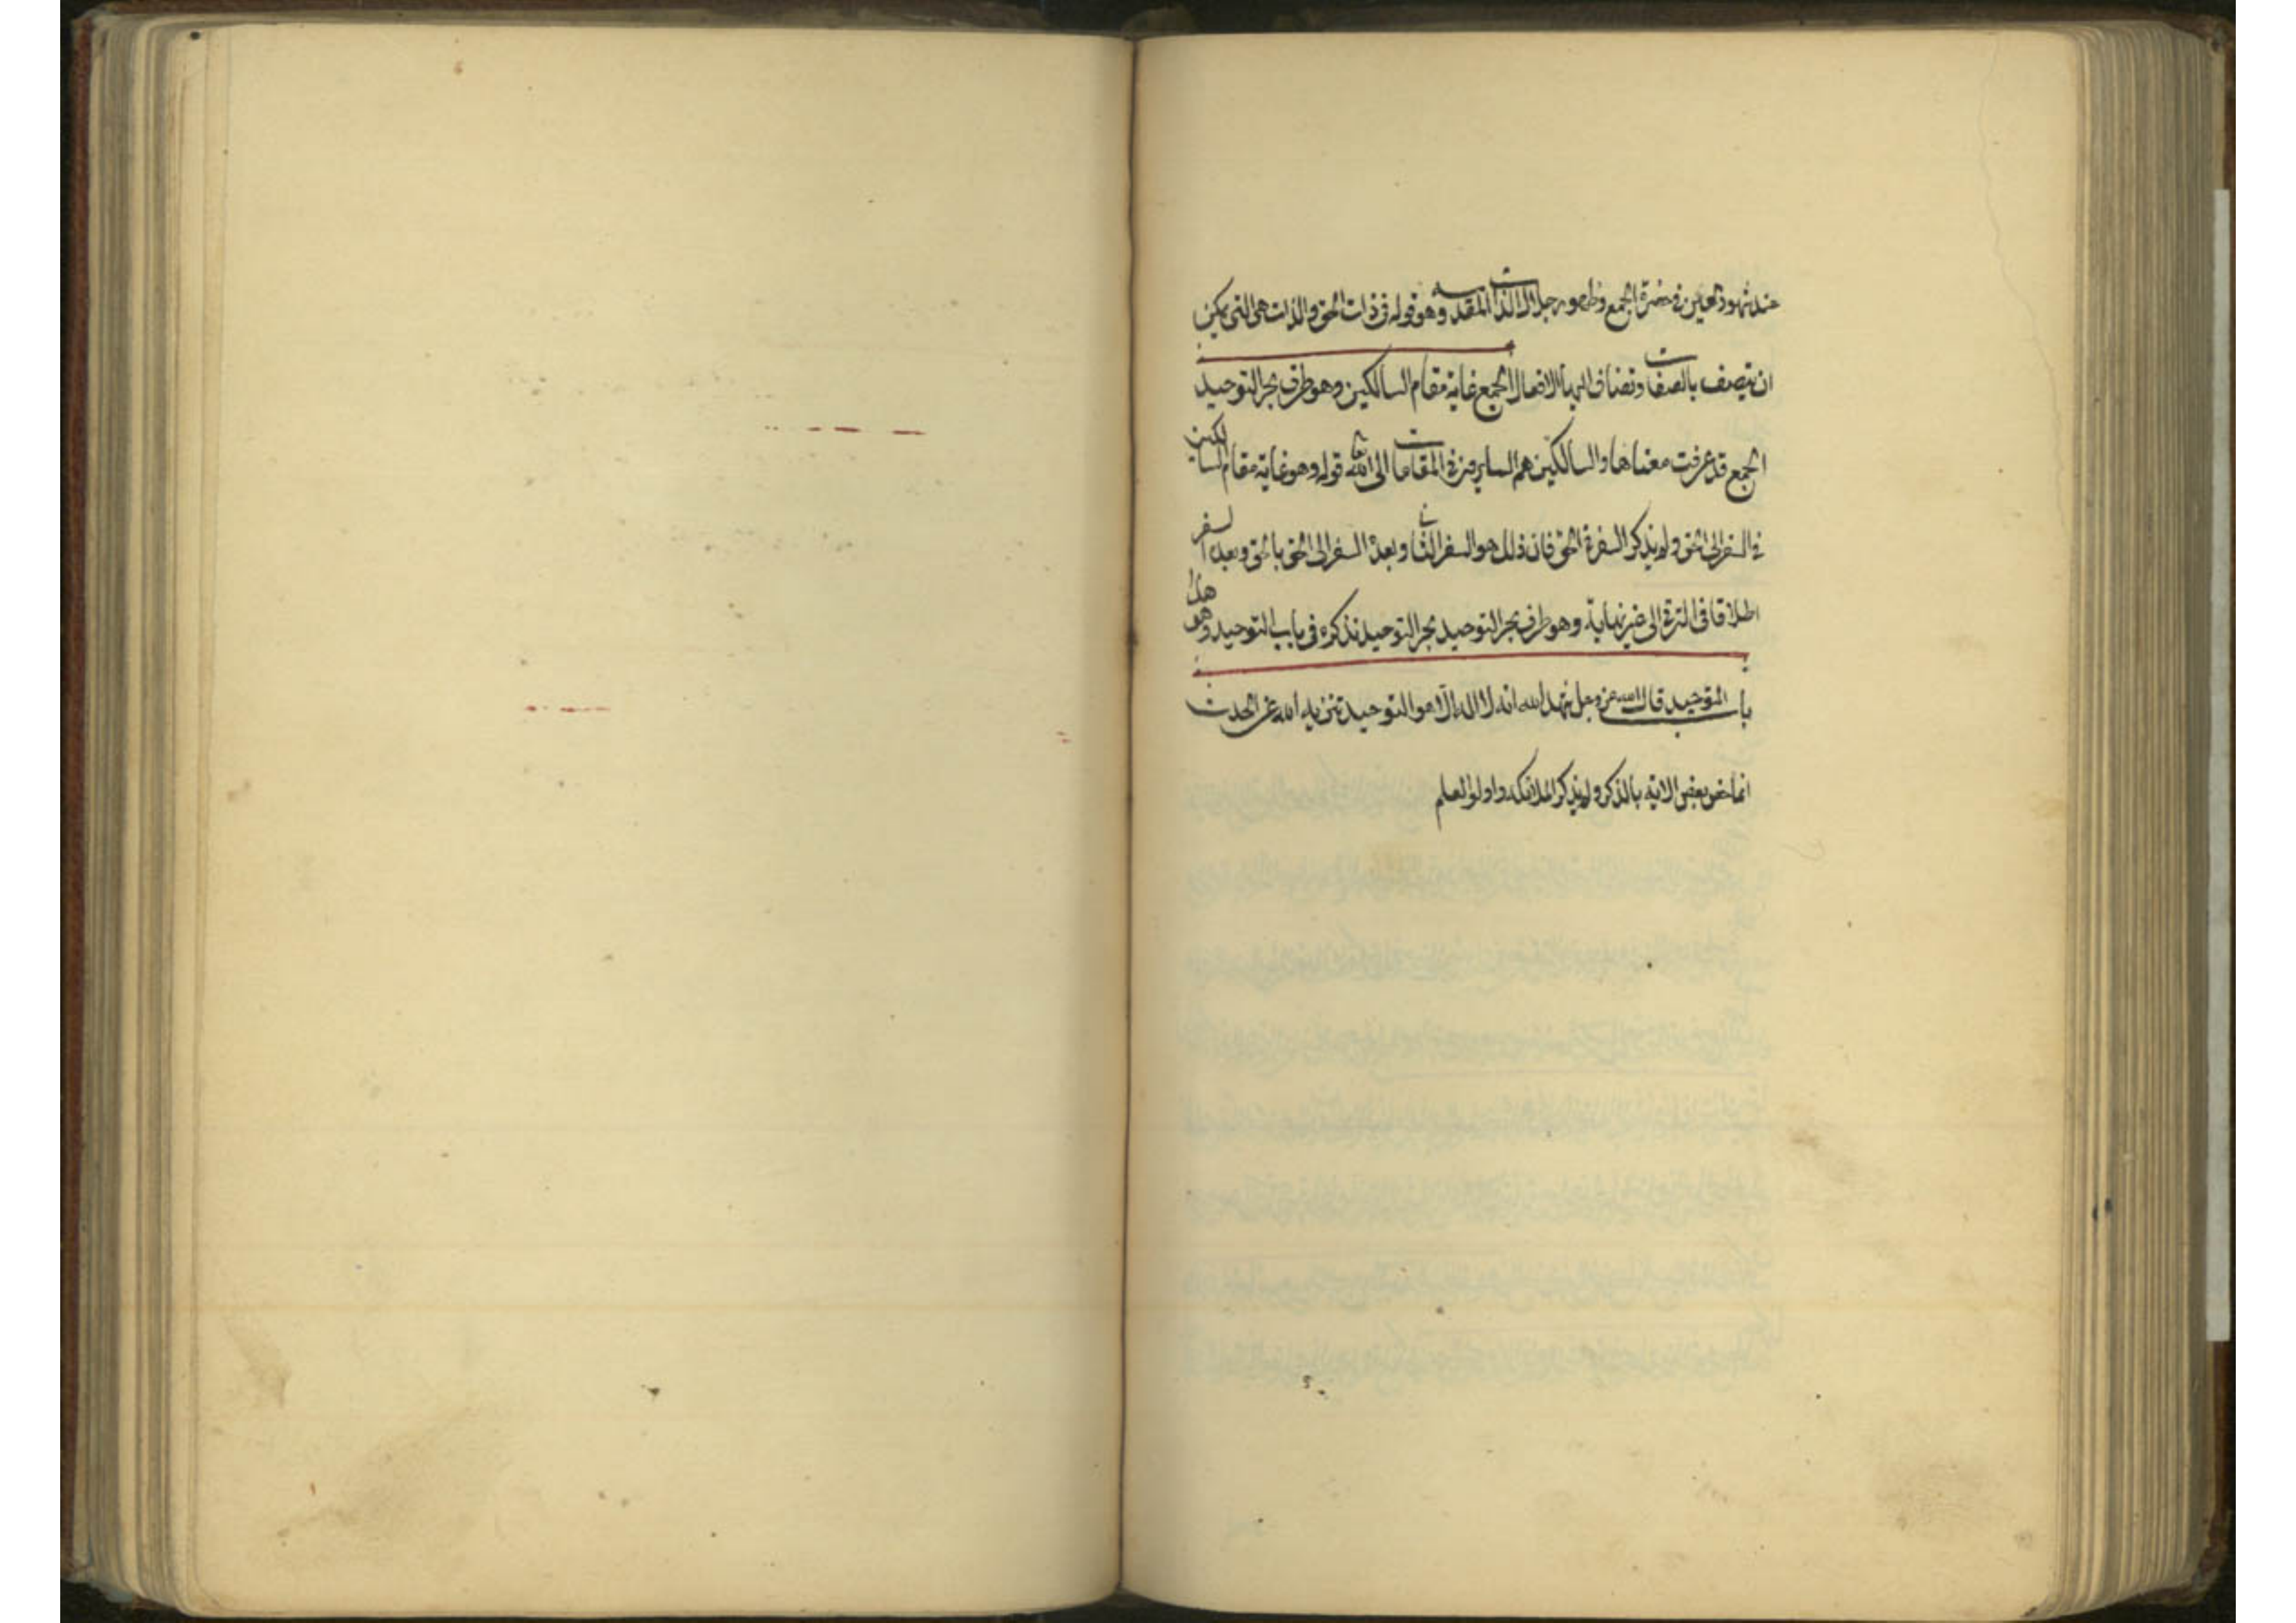 عند شهود العين في حضرة الجمع وظهور جلال الذات المقدسه وهو قوله في ذات الحق والذات هي التي يمكن
ان تتصف بالصفات وتضاف اليها الافعال الجمع غاية مقام السالكين وهو طرف بحر التوحيد
الجمع قد عرفت معناها والسالكين هم السايرون في المقامات الى الله تعالى قوله وهو غاية مقام السالكين
في السفر الى الحق ولم يذكر السفر في الحق فان ذلك هو السفر الثاني وبعده السفر الى الحق بالحق وبعد السفر
اطلاقا في الترقي الى غير نهاية وهو طرف بحر التوحيد بحر التوحيد نذكره في باب التوحيد وهو هذا
باب التوحيد قال الله عز وجل شهد الله انه لا اله الا هو التوحيد تنزيه الله عن الحدث
انما خص بعض الاية بالذكر ولم يذكر الملائكه واولو العلم